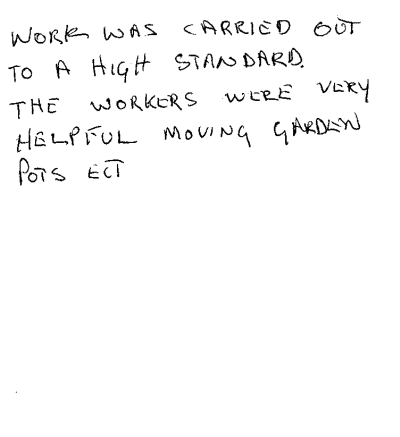 WORK WAS CARRIED OUT
TO A HIGH STANDARD.
THE WORKERS WERE VERY
HELPFUL MOVING GARDEN
POTS ECT